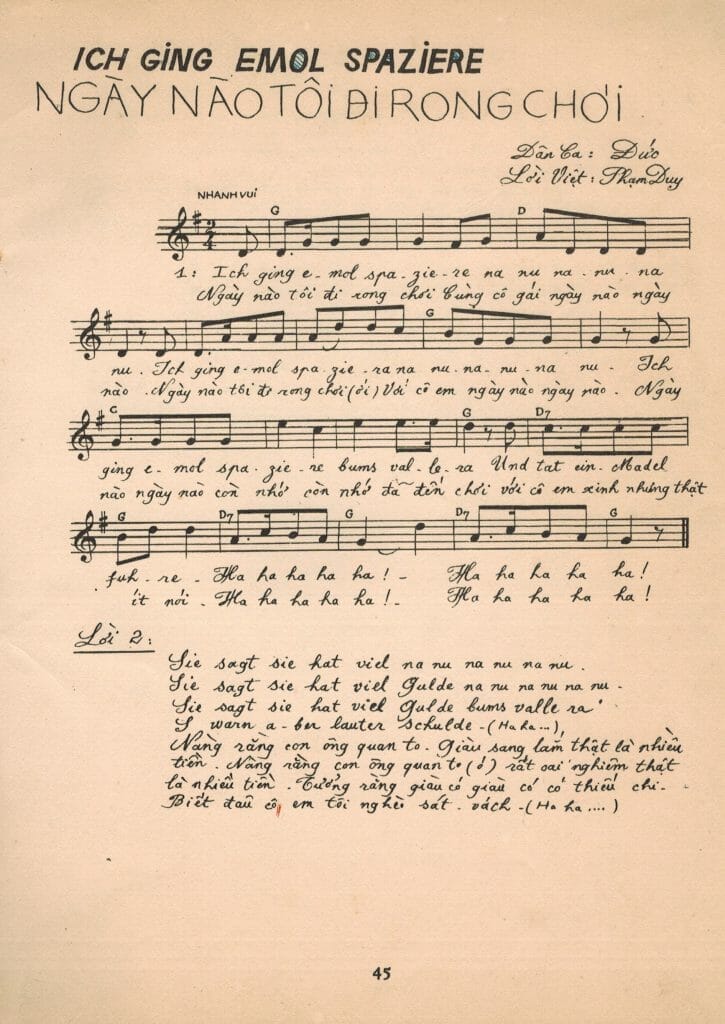 ICH GING EMOL SPAZIERE
NGÀY NÀO TÔI ĐI RONG CHƠI
Dân Ca : Đức
Lời Việt : Phạm Duy
NHANH VUI
G D
2/4
1: Ich ging e-mol spa-zie-re na nu na-nu-na
Ngày nào tôi đi rong chơi Cùng cô gái ngày nào ngày
G
nu. Ich ging e-mol spa-zie-ra na nu-na-nu-na nu. Ich
nào. Ngày nào tôi đi rong chơi (ới) Với cô em ngày nào ngày nào. Ngày
C G D7
ging e-mol spa-zie-re bums val-le-ra Und tat ein-Madel
nào ngày nào còn nhớ còn nhớ đã đến chơi với cô em xinh nhưng thật
G D7 G D7 G
fuh-re- Ha ha ha ha ha!- Ha ha ha ha ha!
ít nói. Ha ha ha ha ha!- Ha ha ha ha ha!
Lời 2:
Sie sagt sie hat viel na nu na nu na nu.
Sie sagt sie hat viel Gulde na nu na nu na nu-
Sie sagt sie hat viel Gulde bums valle ra'
S warn a-ber lauter schulde-(Ha ha...)
Nàng rằng con ông quan to. Giàu sang lắm thật là nhiều
tiền. Nàng rằng con ông quan to (ớ) rất oai nghiêm thật
là nhiều tiền. Tưởng rằng giàu có giàu có có thiếu chi-
Biết đâu cô em tôi nghèo sát vách-(Ha ha....)
45